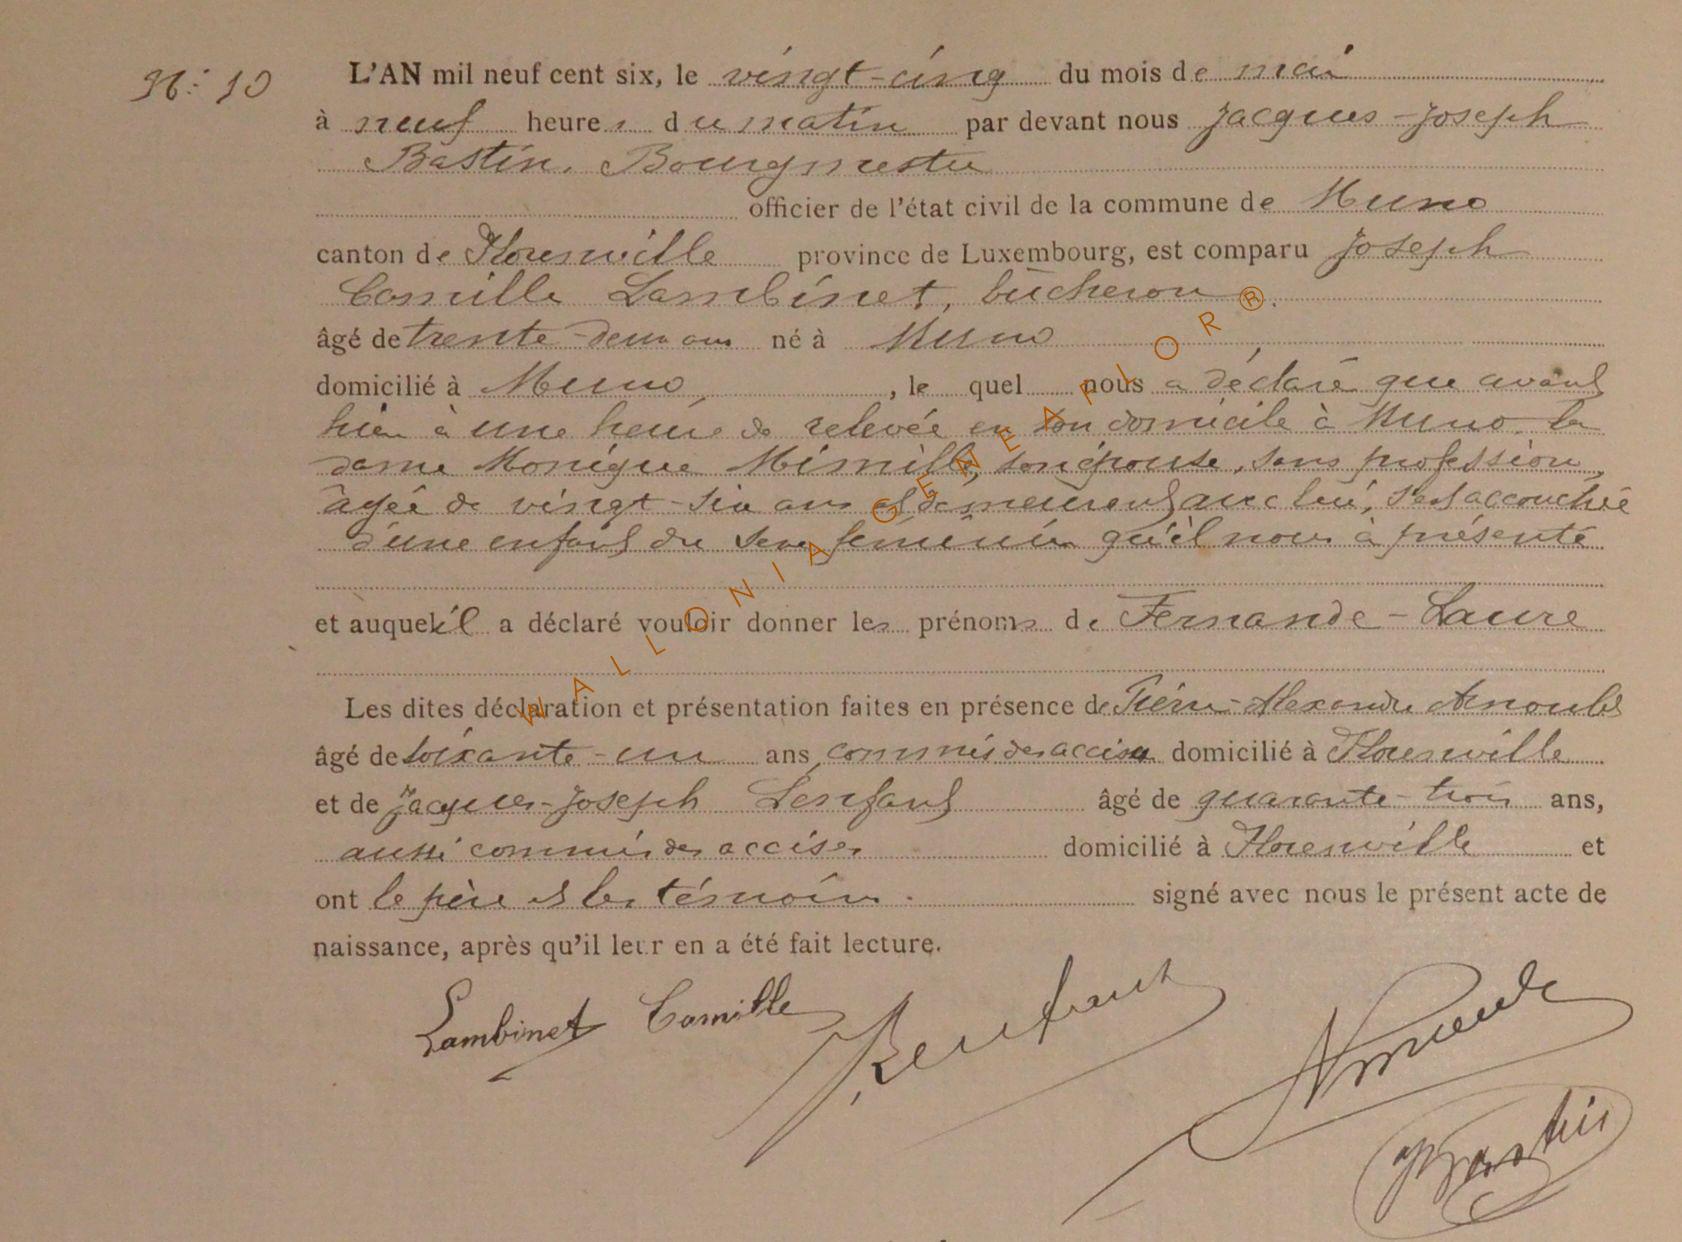 N: 10
L'AN mil neuf cent six, le vingt-cinq du mois de mai
à neuf heures du matin par devant nous Jacques-Joseph
Bastin, Bourgmestre
officier de l'état civil de la commune de Muno
canton de Florenville province de Luxembourg, est comparu Joseph
Camille Lambinet, bûcheron
âgé de trente-deux ans né à Muno
domicilié à Muno, , le quel nous a déclaré que avant
hier à une heure de relevée en son domicile à Muno la
dame Monique Mimille, son épouse, sans profession,
âgée de vingt-six ans et demeurant avec lui, s'est accouchée
d'une enfant du sexe féminin qu'il nous à présenté
et auquel il a déclaré vouloir donner les prénoms de Fernande-Laure
Les dites déclaration et présentation faites en présence de Pierre-Alexandre Arnould
âgé de soixante-un ans commis des accises domicilié à Florenville
et de Jacques-Joseph Lenfant âgé de quarante-trois ans,
aussi commis des accises domicilié à Florenville et
ont le père et les témoins. signé avec nous le présent acte de
naissance, après qu'il leur en a été fait lecture.
Lambinet Camille
JBastin
WALLONIA GENEAPIOR®